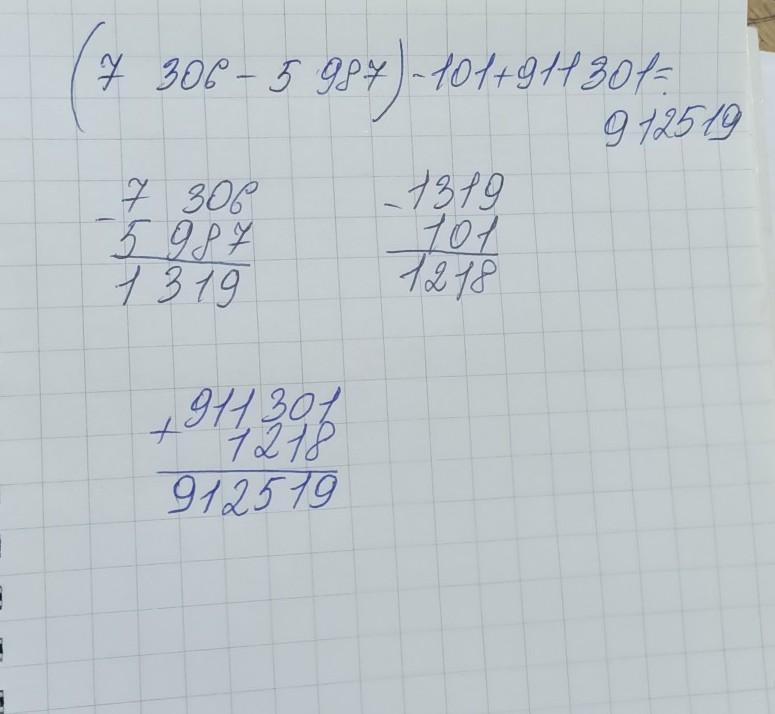 (7 306 - 5 987) - 101 + 911 301 =
912519
- 7 306
5 987
1 319
- 1319
101
1218
+ 911 301
1 218
912519